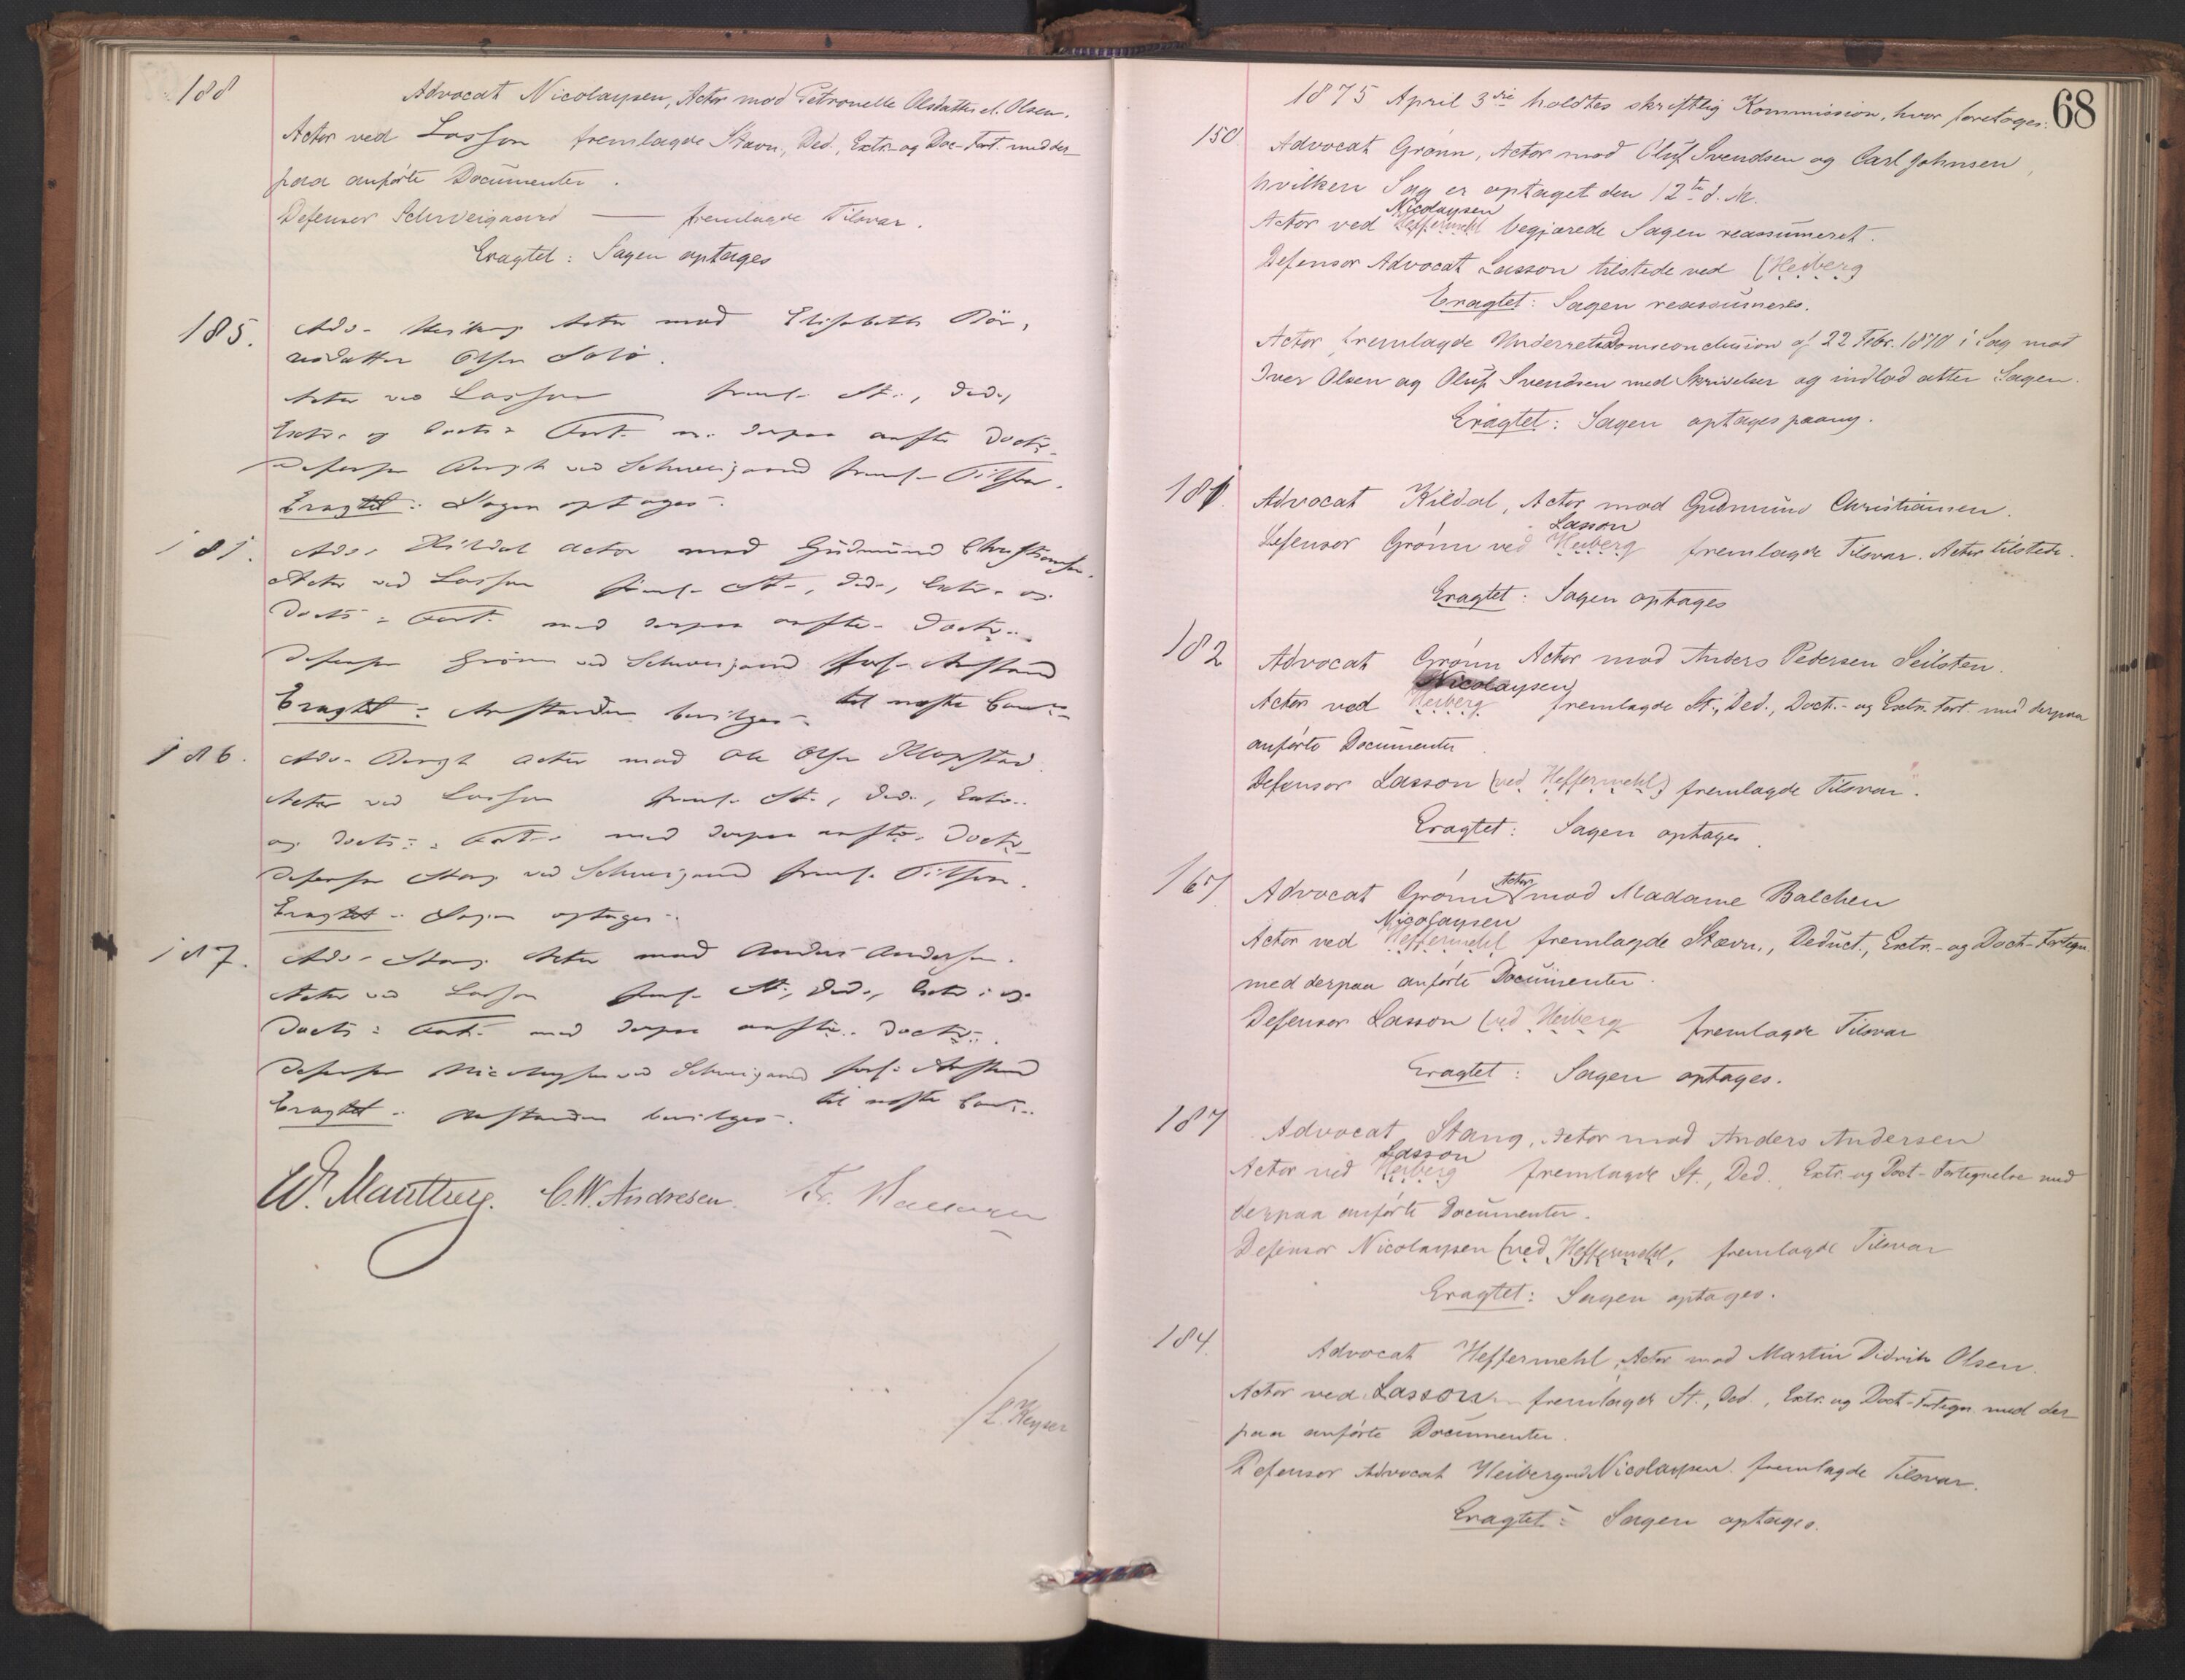 188
Advocat Nicolaysen, Actor mod Petronelle Olsdatter el. Olsen.
Actor ved Lasson fremlagde Stævn., Ded., Extr.- og Doc.-Fort. med der-
paa anførte Documenter.
Defensor Schweigaard — fremlagde Tilsvar.
Eragtet: Sagen optages
185.
Adv. Actor mod Elisabeth
Olsen
Actor ved Lasson freml. St., Ded.,
Extr. og Docts. Fort. m. derpaa anførte Doctr.
Defensor Bergh ved Schweigaard freml. Tilsvar.
Eragtet: Sagen optages.
181.
Adv. Kildal Actor mod Gudmund Christiansen.
Actor ved Lasson freml. St., Ded., Extr. og
Docts. Fort. med derpaa anførte Doctr.
Defensor Grønn ved Schweigaard forl. Anstand
til næste Comm.
Eragtet: Anstanden bevilges.
186.
Adv. Bergh Actor mod Ole Olsen Klopstad.
Actor ved Lasson freml. St., Ded., Extr.
og Docts. Fort. med derpaa anførte Doctr.
Defensor Stang ved Schweigaard freml. Tilsvar.
Eragtet: Sagen optages.
187.
Adv. Stang Actor mod Anders Andersen.
Actor ved Lasson freml. St., Ded., Extr. og
Docts. Fort. med derpaa anførte Doctr.
Defensor Nicolaysen ved Schweigaard forl. Anstand
til næste Comm.
Eragtet: Anstanden bevilges.
C.W. Andresen.
/L. Keyser
68
1875 April 3die holdtes skriftlig Kommission, hvor foretages:
150
Advocat Grønn, Actor mod Oluf Svendsen og Carl Johnsen,
hvilken Sag er optaget den 12te d. M.
Nicolaysen
Actor ved Heffermehl begjærede Sagen reassumeret.
Defensor Advocat Lasson tilstede ved (Heiberg
Eragtet: Sagen reassumeres.
Actor fremlagde Underretsdomsconclusion af 22 Febr. 1870 i Sag mod
Iver Olsen og Oluf Svendsen med Skrivelser og indlod atter Sagen.
Eragtet: Sagen optages paany.
181.
Advocat Kildal, Actor mod Gudmund Christiansen.
Lasson
Defensor Grønn ved Heiberg fremlagde Tilsvar. Actor tilstede.
Eragtet: Sagen optages
182
Advocat Grønn Actor mod Anders Pedersen Seilsten.
Nicolaysen
Actor ved Heiberg fremlagde St., Ded., Doct.- og Extr. Fort. med derpaa
anførte Documenter
Defensor Lasson (ved Heffermehl) fremlagde Tilsvar.
Eragtet: Sagen optages.
167
Actor
Advocat Grønn mod Madame Balchen
Nicolaysen
Actor ved Heffermehl fremlagde Stævn., Deduct., Extr.- og Doct-Fortegn.
med derpaa anførte Documenter.
Defensor Lasson (ved Heiberg fremlagde Tilsvar
Eragtet: Sagen optages.
187
Advocat Stang, Actor mod Anders Andersen
Lasson
Actor ved Heiberg fremlagde St., Ded. Extr. og Doct-Fortegnelse med
derpaa anførte Documenter.
Defensor Nicolaysen (ved Heffermehl, fremlagde Tilsvar
Eragtet: Sagen optages.
184.
Advocat Heffermehl, Actor mod Martin Didrik Olsen.
Actor ved Lasson fremlagde St., Ded., Extr. og Doct-Fortegn. med der-
paa anførte Documenter.
Defensor Advocat Heiberg ved Nicolaysen fremlagde Tilsvar.
Eragtet: Sagen optages.